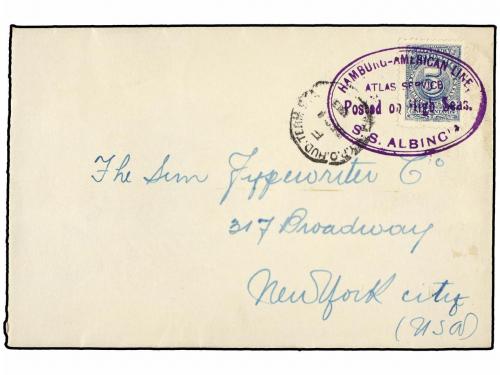 HAMBURG-AMERICAN LINE,
ATLAS SERVICE
Posted on High Seas.
S.S. ALBINGIA
5
R.P.O. HUD. TERM.
The Sun Typewriter Co
317 Broadway
New York city
(USA)